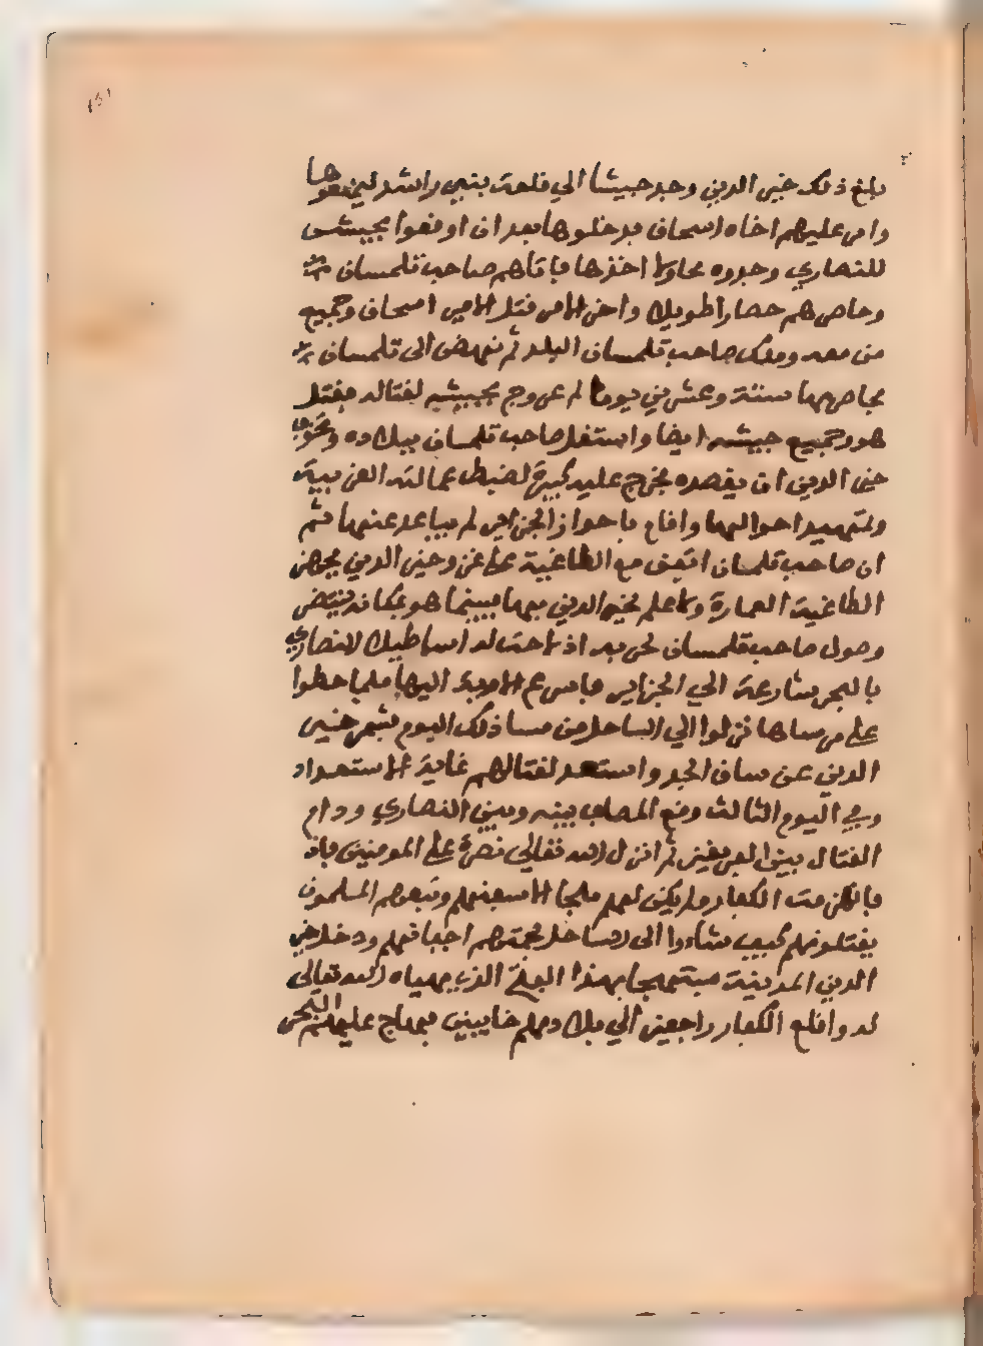 بلغ ذلك خير الدين وجه جيشا الي قلعة بني راشد ليمنعوها
وامر عليهم اخاه اسحاق فدخلوها بعد ان اوقعوا بجيش
للنصاري وجدوه محاولا اخذها فاتاهم صاحب تلمسان
وحاصرهم حصارا طويلا واخر الامر قتل الامير اسحاق وجميع
من معه وملك صاحب تلمسان البلد ثم نهض الى تلمسان
فحاصرها ستة وعشرين يوما ثم عروج بجيشه لقتاله فقتل
هو وجميع جيشه ايضا واستقل صاحب تلمسان ببلاده
خير الدين ان يقصده فخرج عليه لضبط عمالته الغربية
ولتمهيد احوالها واقام باحواز الجزاير لم يباعد عنها ثم
ان صاحب تلمسان اتفق مع الطاغية على غزو خير الدين فجهز
الطاغية العمارة ولا علم لخير الدين بها فبينما هو بمكانه ينتظر
وصول صاحب تلمسان لحربه اذ لاحت له اساطيل النصاري
بالبحر شارعة الي الجزاير فاسرع الاوبة اليها فلما حطوا
على مرساها نزلوا الي الساحل من مسا ذلك اليوم فشمر خير
الدين عن ساق الجد واستعد لقتالهم غاية الاستعداد
وفي اليوم الثالث وقع المصاف بينه وبين النصاري ودام
القتال بين الفريقين ثم انزل الله تعالى نصره على المومنين
الكفار ولم يكن لهم ملجا الا سفنهم وتبعهم المسلمون
يقتلونهم كيف شاءوا الى الساحل اجفانهم ودخل خير
الدين المدينة مبتهجا بهذا الفتح الذي هياه الله تعالى
له واقلع الكفار راجعين الي بلادهم خايبين فهاج عليهم البحر